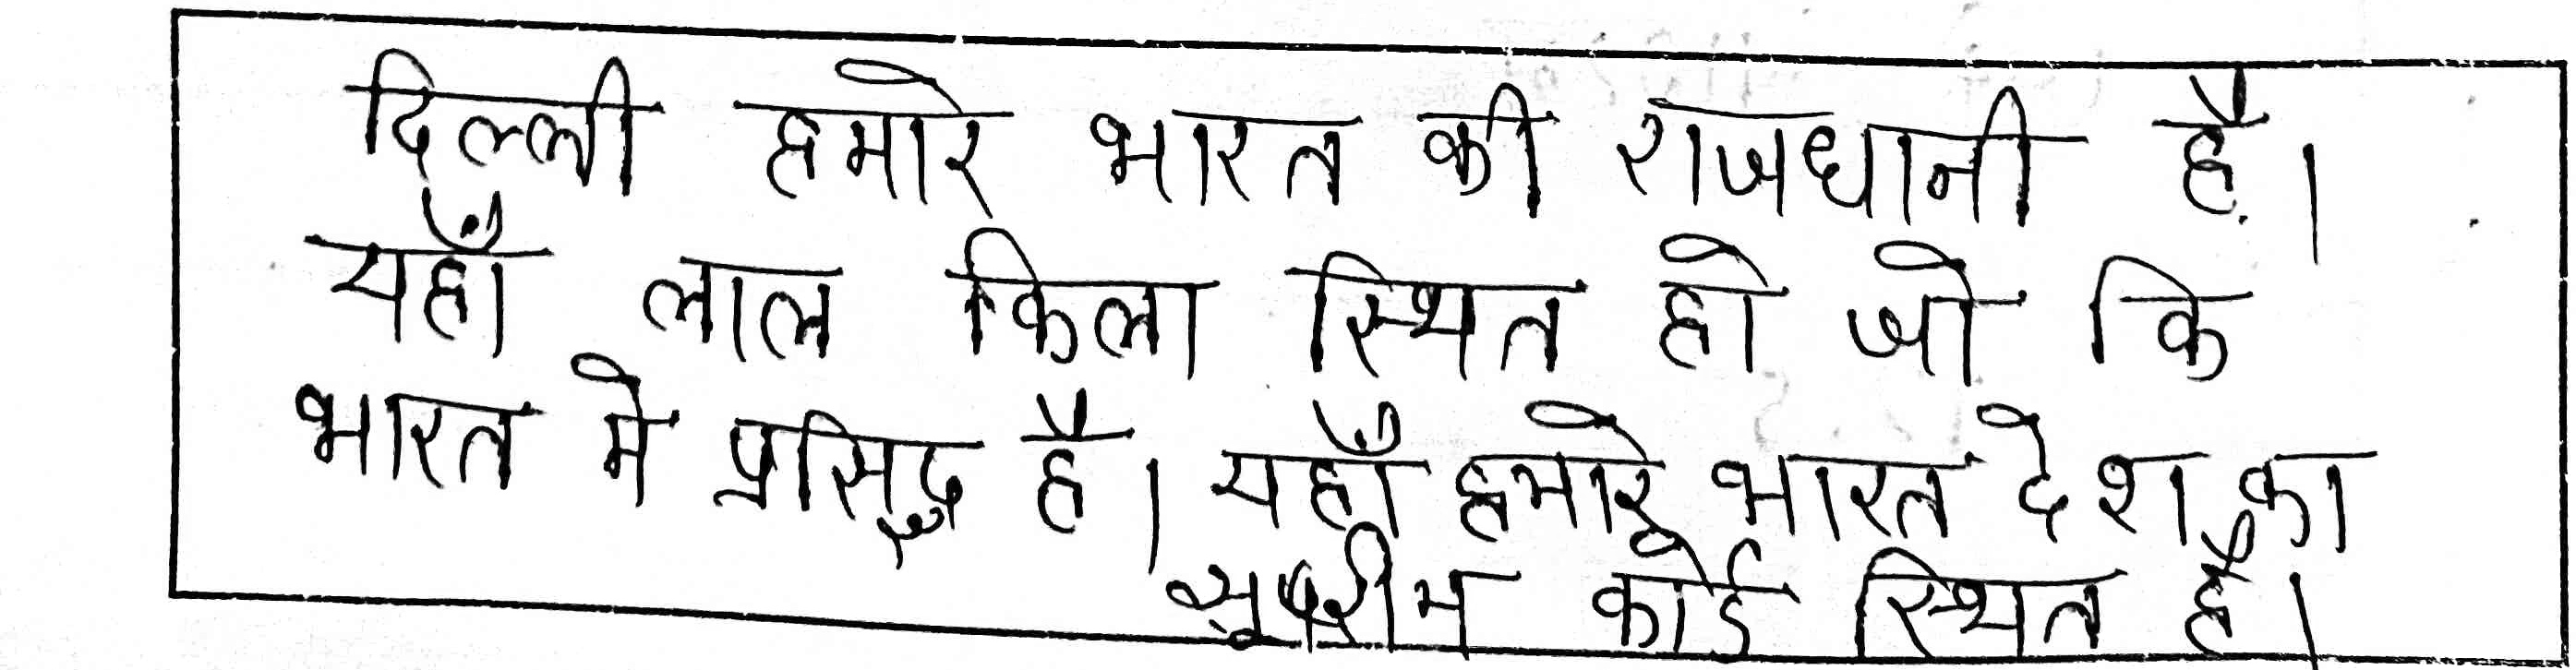 दिल्ली हमारे भारत की राजधानी है।
यहाँ लाल किला स्थित हो जो कि
भारत मे प्रसिद्ध है। यहाँ हमारे भारत देश का
सूपरीम कोर्ड स्थित है।